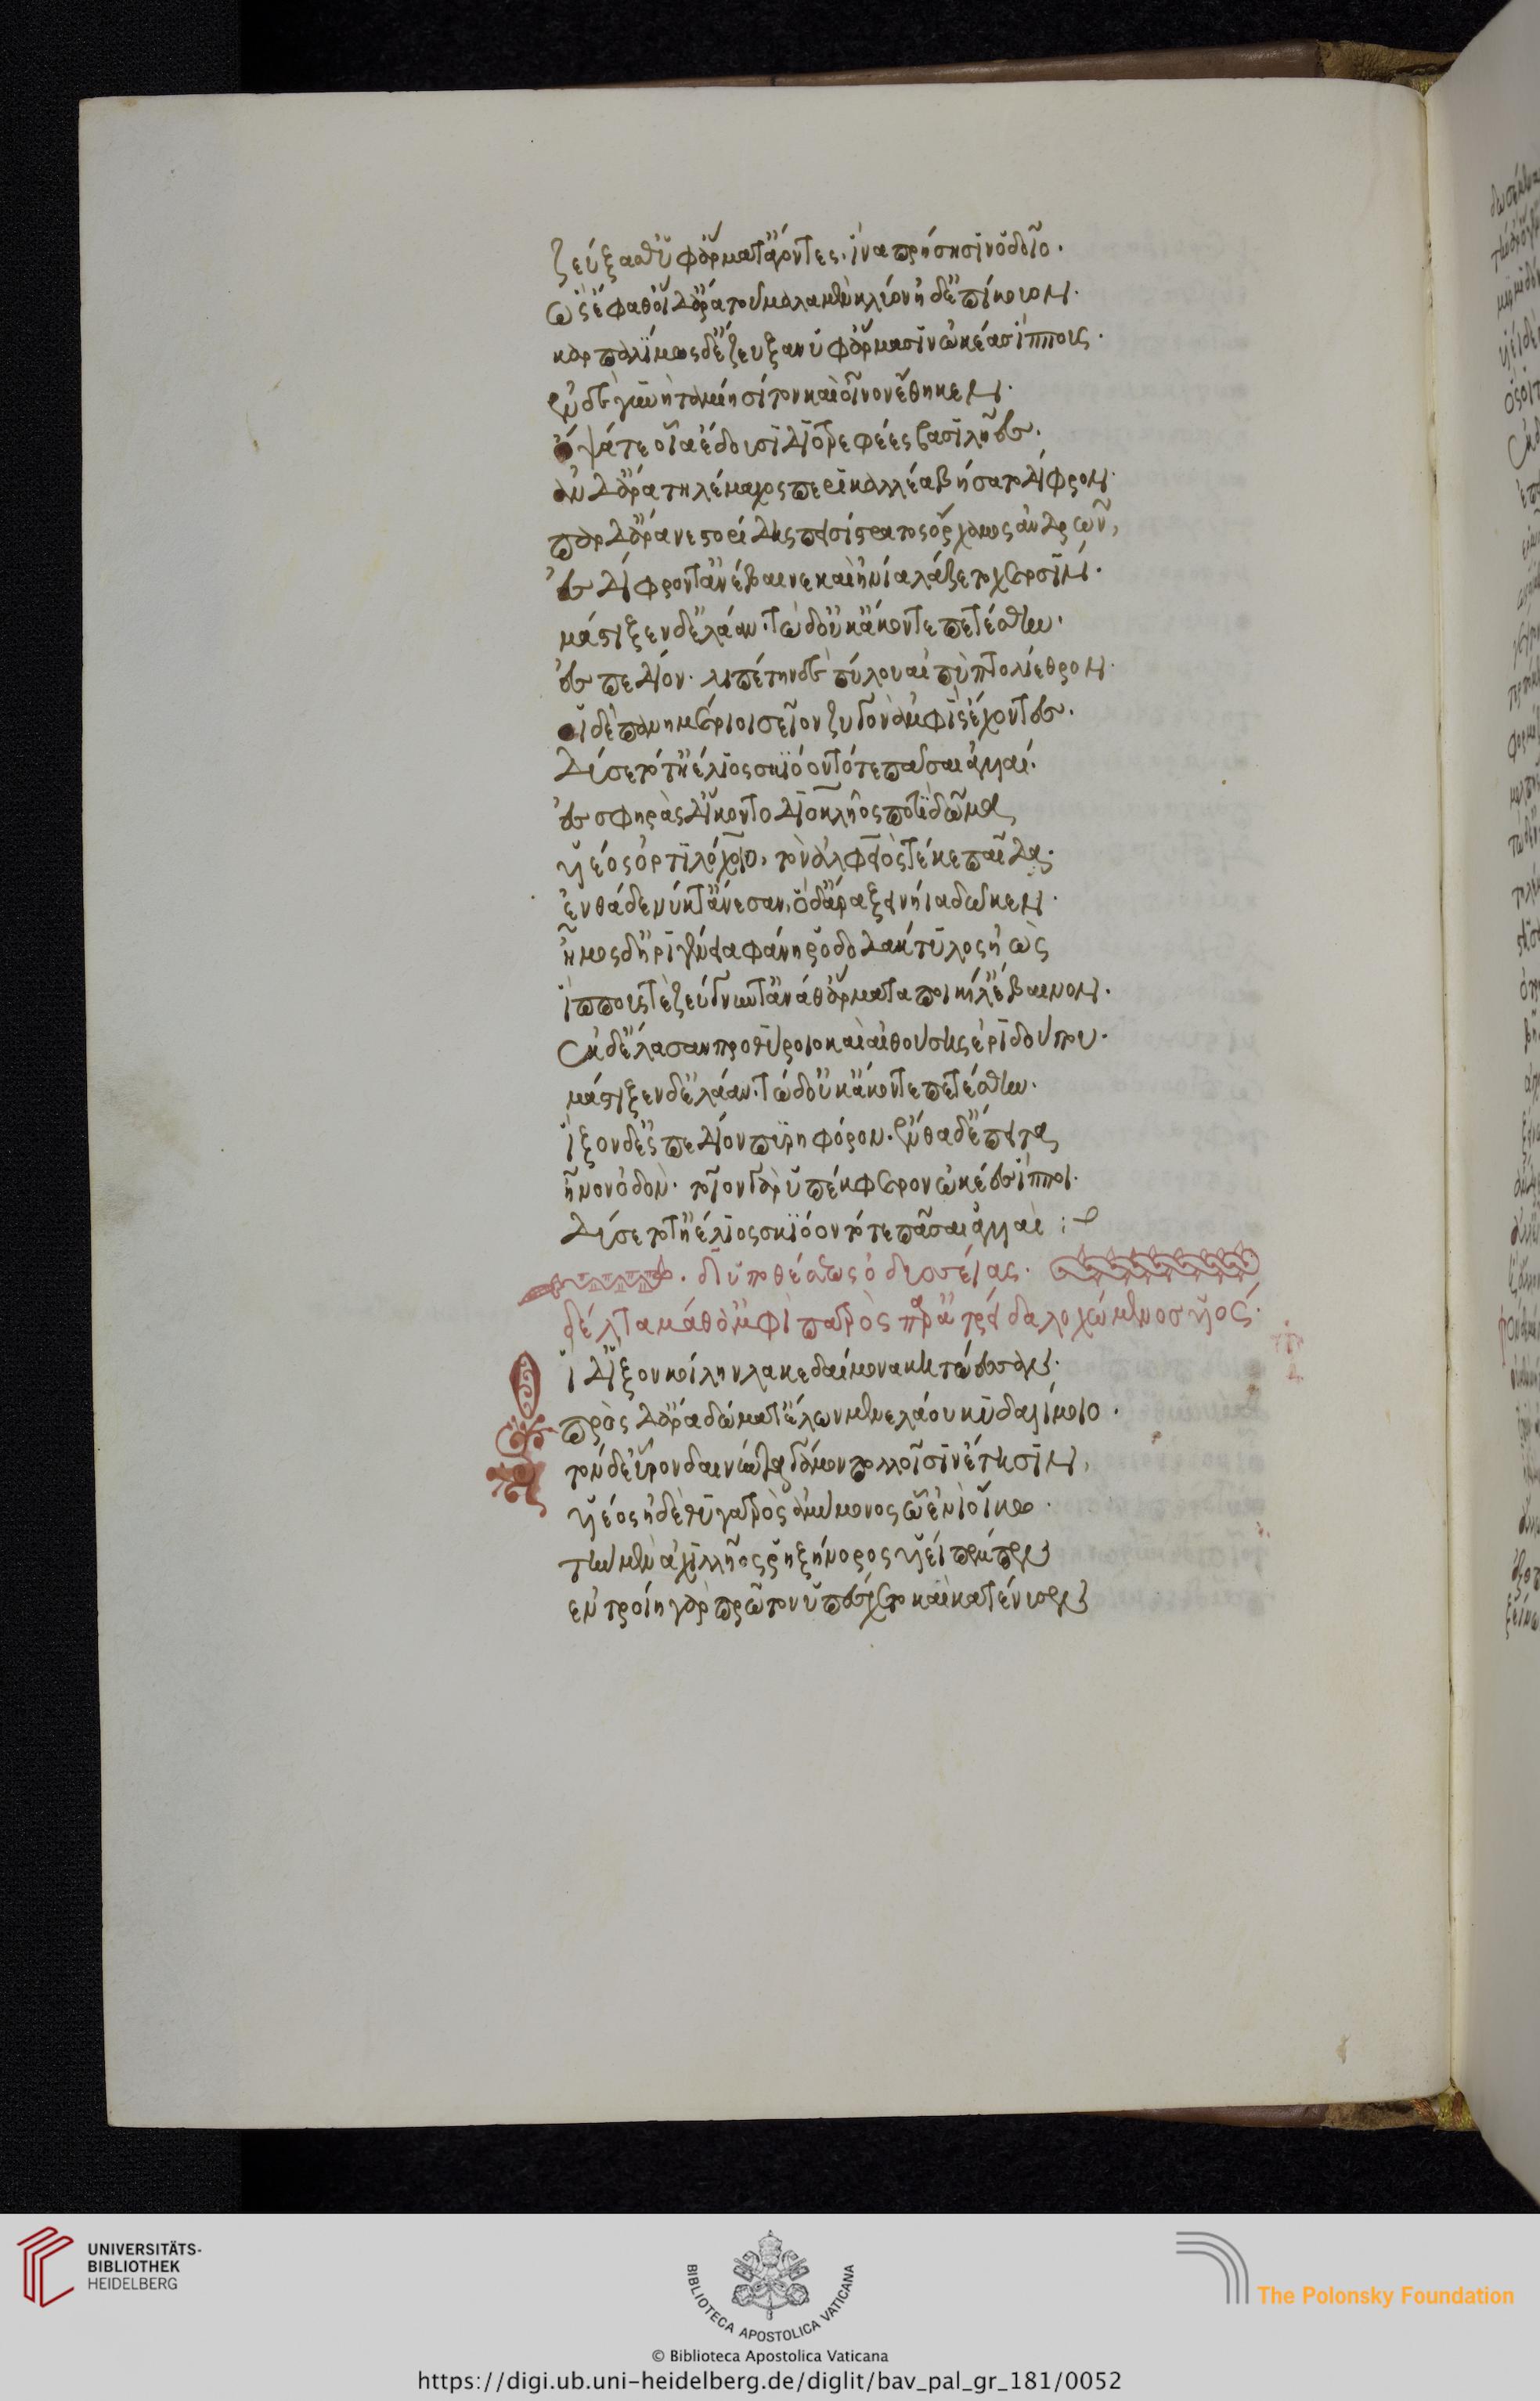 ζεύξαθ' ὑφ' ἅρματ' ἄγοντες, ἵνα πρήσσησιν ὁδοῖο.
ὣς ἔφαθ' οἱ δ' ἄρα τοῦ μάλα μὲν κλύον ἠδ' ἐπίθοντο.
καρπαλίμως δ' ἔζευξαν ὑφ' ἅρμασιν ὠκέας ἵππους.
ἐν δὲ γυνὴ ταμίη σίτον καὶ οἶνον ἔθηκεν.
ὄψά τε οἷα ἔδουσι διοτρεφέες βασιλῆες.
ἂν δ' ἄρα τηλέμαχος περικαλλέα βήσατο δίφρον.
πὰρ δ' ἄρα νεστορίδης πεισίστρατος ὄρχαμος ἀνδρῶν,
ἐς δίφρον τ' ἀνέβαινε καὶ ἡνία λάζετο χερσίν.
μάστιξεν δ' ἐλάαν. τὼ δ' οὐκ ἄκοντε πετέσθην.
ἐς πεδίον. λιπέτην δὲ πύλου αἰπὺ πτολίεθρον.
οἱ δὲ πανημέριοι σεῖον ζυγὸν ἀμφὶς ἔχοντες.
δύσετό τ' ἠέλιος σκιόοντό τε πᾶσαι ἀγυιαί.
ἐς φηρὰς δ' ἵκοντο διοκλῆος ποτὶ δῶμα
υἱέος ὀρτιλόχοιο, τὸν ἀλφειὸς τέκε παῖδα.
ἔνθα δὲ νύκτ' ἄεσαν, ὁ δ' ἄρα ξεινήια δῶκεν.
ἦμος δ' ἠριγένεια φάνη ῥοδοδάκτυλος ἠὼς
ἵππους τὲ ζεύγνυντ' ἀνά θ' ἅρματα ποικίλ' ἔβαινον.
ἐκ δ' ἔλασαν προθύροιο καὶ αἰθούσης ἐριδούπου.
μάστιξεν δ' ἐλάαν. τὼ δ' οὐκ ἄκοντε πετέσθην.
ἷξον δ' ἐς πεδίον πυρηφόρον. ἔνθα δ' ἔπειτα
ἦνον ὁδὸν. τοῖον γὰρ ὑπέκφερον ὠκέες ἵπποι.
δύσετό τ' ἠέλιος σκιόοντό τε πᾶσαι ἀγυιαὶ :
δ ὑποθέσεως ὀδυσσείας.
δέλτα μάθ' ἀμφὶ πατρὸς παρ' ἀτρείδα λοχώμενος υἱός.
Οἱ δ' ἷξον κοίλην λακεδαίμονα κητώεσσαν.
πρὸς δ' ἄρα δώματ' ἔλων μενελάου κυδαλίμοιο.
τὸν δ' εὗρον δαινύντα γάμον πολλοῖσιν ἔτησιν,
υἱέος ἠδὲ θυγατρὸς ἀμύμονος ᾧ ἐνὶ οἴκῳ.
τὴν μὲν ἀχιλλῆος ῥηξήνορος υἱέι πέμπεν
ἐν τροίῃ γὰρ πρῶτον ὑπέσχετο καὶ κατένευσεν
UNIVERSITÄTS-
BIBLIOTHEK
HEIDELBERG
BIBLIOTECA APOSTOLICA VATICANA
The Polonsky Foundation
© Biblioteca Apostolica Vaticana
https://digi.ub.uni-heidelberg.de/diglit/bav_pal_gr_181/0052